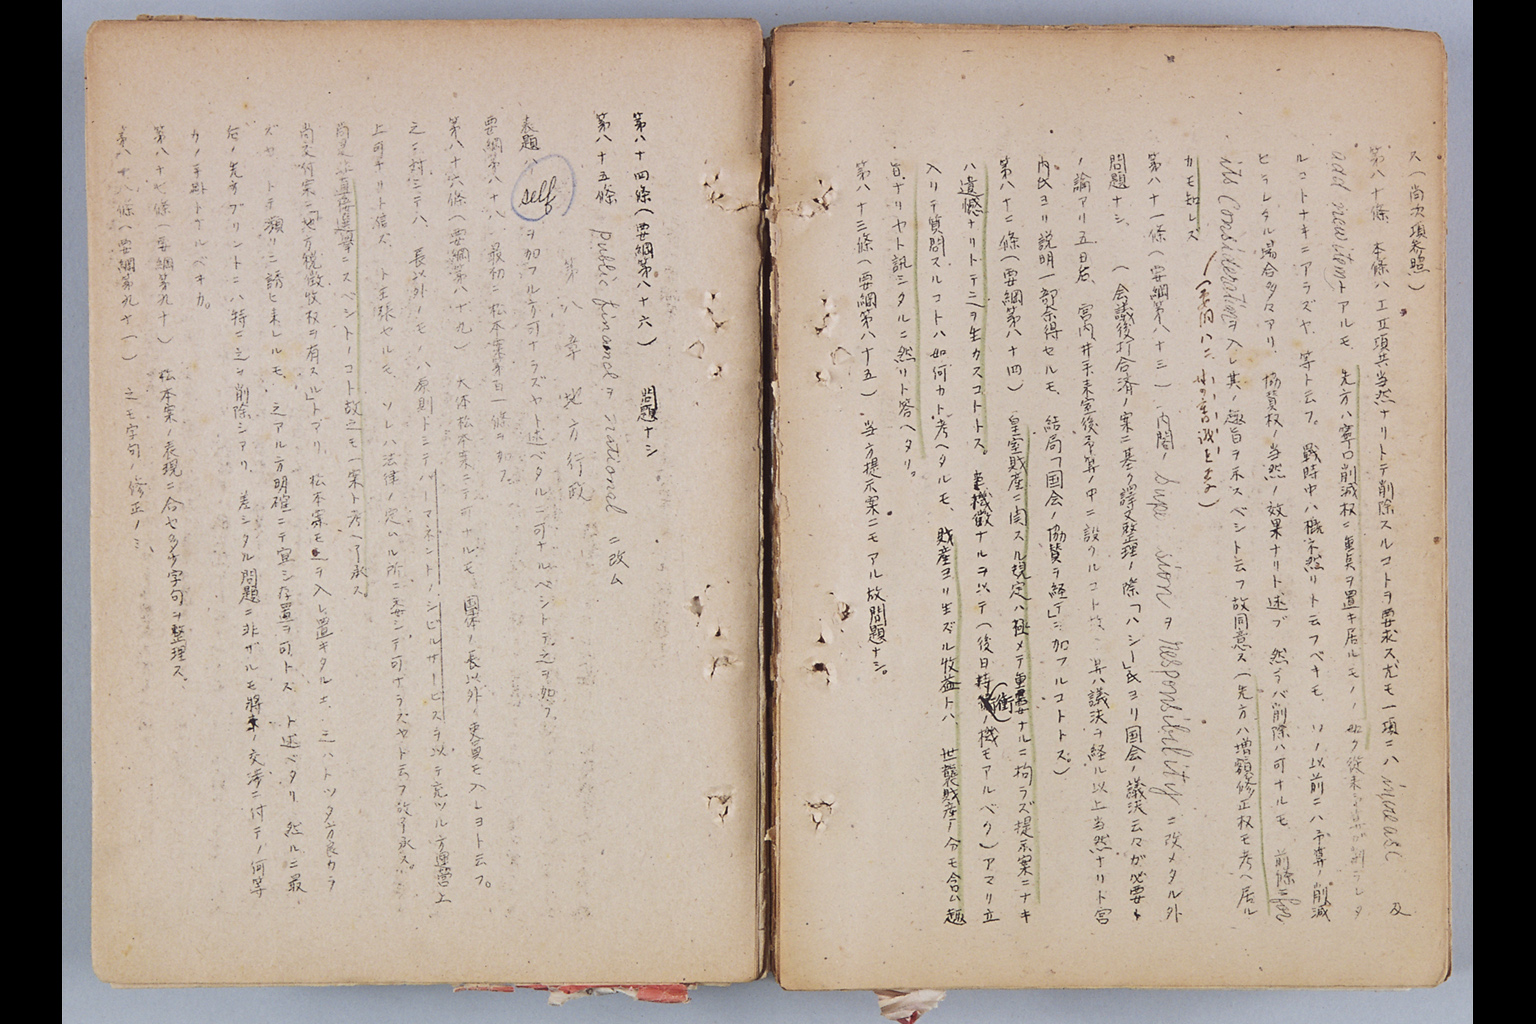 ス(尚次項参照)
第八十條 本條ハ一、二項共当然ナリトテ削除スルコトヲ要求スルモ一項ニハ increase 及
add new item トアルモ、先方ハ寧ロ削減権ニ重点ヲ置キ居ルモノノ如ク従来
ルコトナキニアラズヤ、等ト云フ。戦時中ハ概ネ然リト云フベキモ、ソノ以前ニハ予算ノ削減
ヒラレタル場合多々アリ、協賛権ノ当然ノ効果ナリト述ブ 然ラバ削除ハ可ナルモ、前條ニ for
its consideration ヲ入レ其ノ趣旨ヲ示スベシト云フ故同意ス(先方ハ増額修正権モ考ヘ居ル
カモ知レズ
第八十一條(要綱第八十三) 内閣ノ supervision ヲ responsibility ニ改メタル外
問題ナシ、(会議後打合済ノ案ニ基ク譯文整理ノ際「ハシー」氏ヨリ国会ノ議決云々ガ必要
ノ論アリ五日后、宮内 予算ノ中ニ設クルコト 議決ヲ経ル以上当然ナリト宮
内氏ヨリ説明一部余得セルモ、結局「国会ノ協賛ヲ経テ」ニ加フルコトトス。)
第八十二條(要綱第八十四) 皇室財産ニ関スル規定ハ極メテ重要ナルニ拘ラズ提示案ニナキ
ハ遺憾ナリトテ之ヲ生カスコトトス。 機微ナルヲ以テ(後日折衝ノ機モアルベク)アマリ立
入リテ質問スルコトハ如何カト考ヘタルモ、財産ヨリ生ズル收益トハ、世襲財産ノ分モ含ム趣
旨ナリヤト訊シタルニ然リト答ヘタリ。
第八十三條(要綱第八十五) 当方提示案ニモアル故問題ナシ。
第八十四條(要綱第八十六) 問題ナシ
第八十五條 public finance ヲ national ニ改ム
第八章 地方行政
表題ハ self ヲ加フル方可ナラズヤト述ベタルニ可ナルベシトテ之ヲ加フ
要綱第八十八、最初ニ松本案第百一條ヲ加フ。
第八十六條(要綱第八十九) 大体松本案ニテ可ナルモ、團体ノ長以外ノ吏員モ入レヨト云フ。
之ニ対シテハ、長以外ノモノハ原則トシテパーマネント・シビルサービスヲ以テ充ツル方運営上
上可ナリト信ズ、ト主張セルモ、ソレハ法律ノ定ムル所ニ委シテ可ナラズヤト云フ故了承ス。
尚 直接選挙ニスベシトノコト故之モ一案ト考ヘ了承ス
尚交付案ニ「地方税徴收権ヲ有スル」トアリ、松本案モ之ヲ入レ置キタルモ、之ハトツタ方良カラ
ズヤ、ト 頻リニ誘ヒ来レルモ、之アル方明確ニテ宜シク存置ヲ可トス、ト述ベタリ 然ルニ最
后ノ先方プリントニハ特ニ之ヲ削除シアリ、差シタル問題ニ非ザルモ將来ノ交渉ニ付テノ何等
カノ手卦トナルベキカ。
第八十七條(要綱第九十) 松本案ノ表現ニ合セ多少字句ヲ整理ス。
第八十八條(要綱第九十一) 之モ字句ノ修正ノミ、